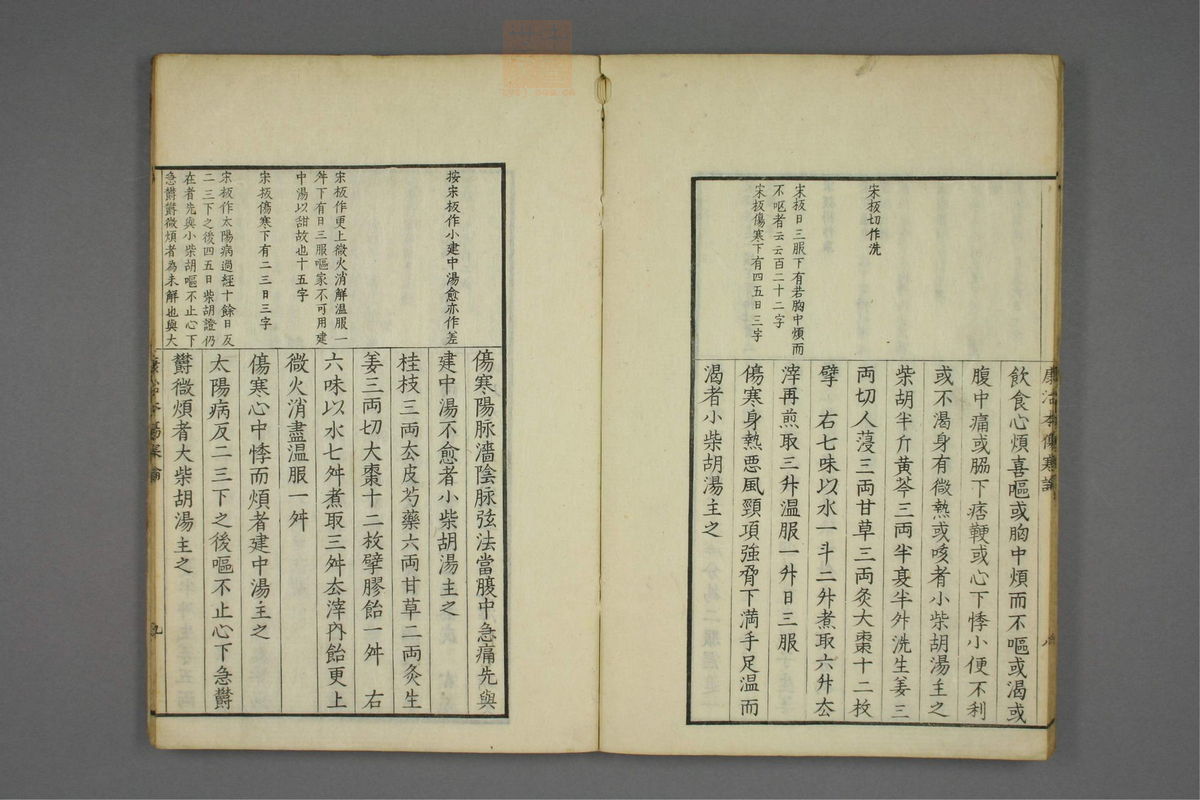 康治本傷寒論
八
飲食心煩喜嘔或胸中煩而不嘔或渴或
腹中痛或脇下痞鞕或心下悸小便不利
或不渴身有微熱或咳者小柴胡湯主之
柴胡半斤黄芩三両半夏半升洗生姜三
両切人薓三両甘草三両灸大棗十二枚
擘　右七味以水一斗二升煮取六升厺
滓再煎取三升温服一升日三服
傷寒身熱悪風頸項強脅下満手足温而
渴者小柴胡湯主之
宋板切作洗
宋板日三服下有若胸中煩而
不呕者云云百二十二字
宋板傷寒下有四五日三字
傷寒陽脉濇陰脉弦法當腹中急痛先與
建中湯不愈者小柴胡湯主之
桂枝三両厺皮芍藥六両甘草二両灸生
姜三両切大棗十二枚擘膠飴一舛　右
六味以水七舛煮取三舛厺滓內飴更上
微火消盡温服一舛
傷寒心中悸而煩者建中湯主之
太陽病反二三下之後嘔不止心下急欝
欝微煩者大柴胡湯主之
按宋板作小建中湯愈亦作差
宋板作更上微火消解温服一
舛下有日三服嘔家不可用建
中湯以甜故也十五字
宋板傷寒下有二三日三字
宋板作太陽病過経十餘日反
二三下之後四五日柴胡證仍
在者先與小柴胡嘔不止心下
急欝欝微煩者為未解也與大
九